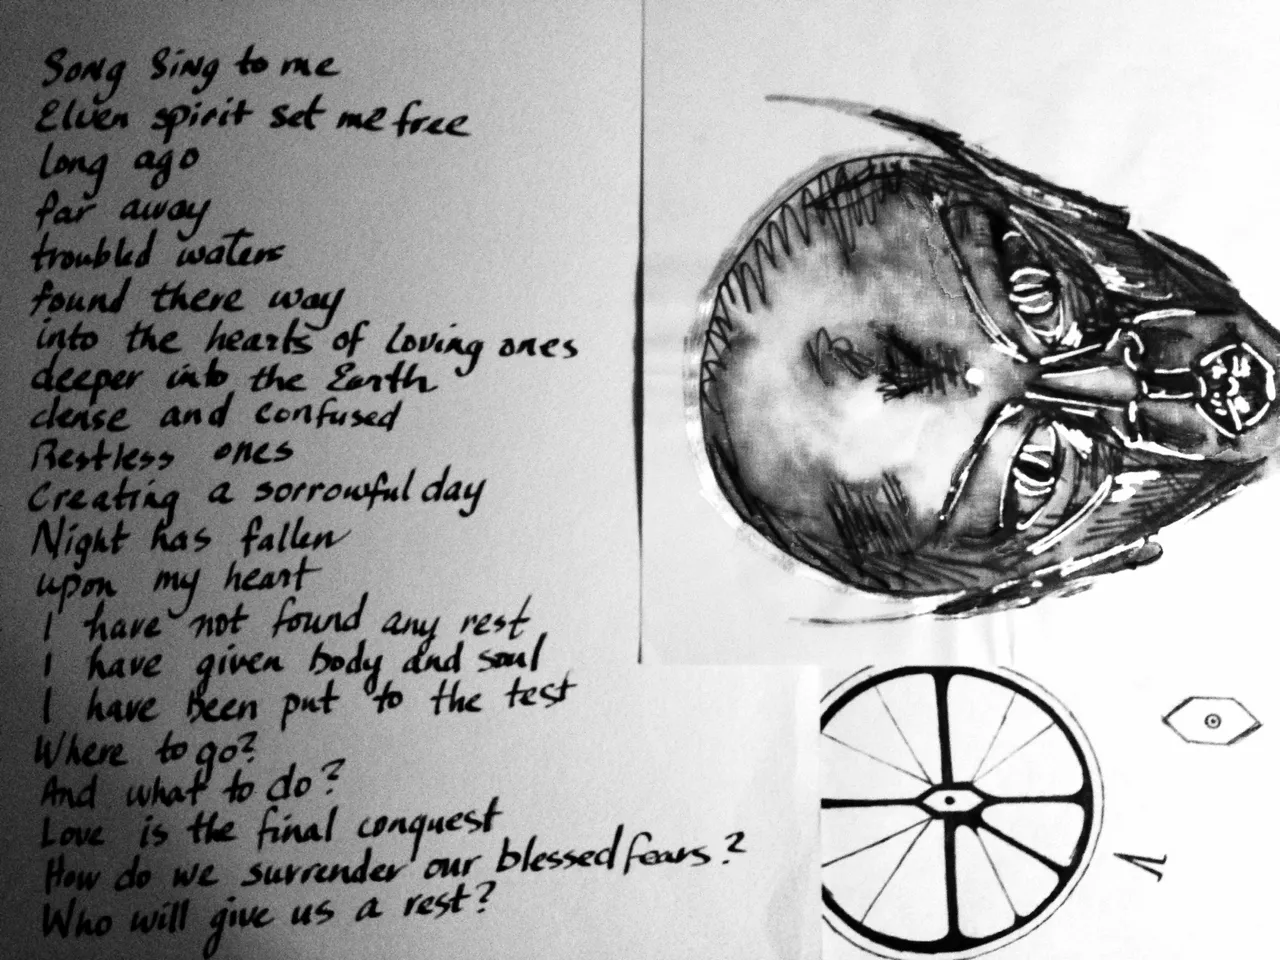 Song Sing to me
Elven spirit set me free
long ago
far away
troubled waters
found there way
into the hearts of Loving ones
deeper into the Earth
dense and confused
Restless ones
Creating a sorrowful day
Night has fallen
upon my heart
I have not found any rest
I have given body and soul
I have been put to the test
Where to go?
And what to do?
Love is the final conquest
How do we surrender our blessed fears?
Who will give us a rest?